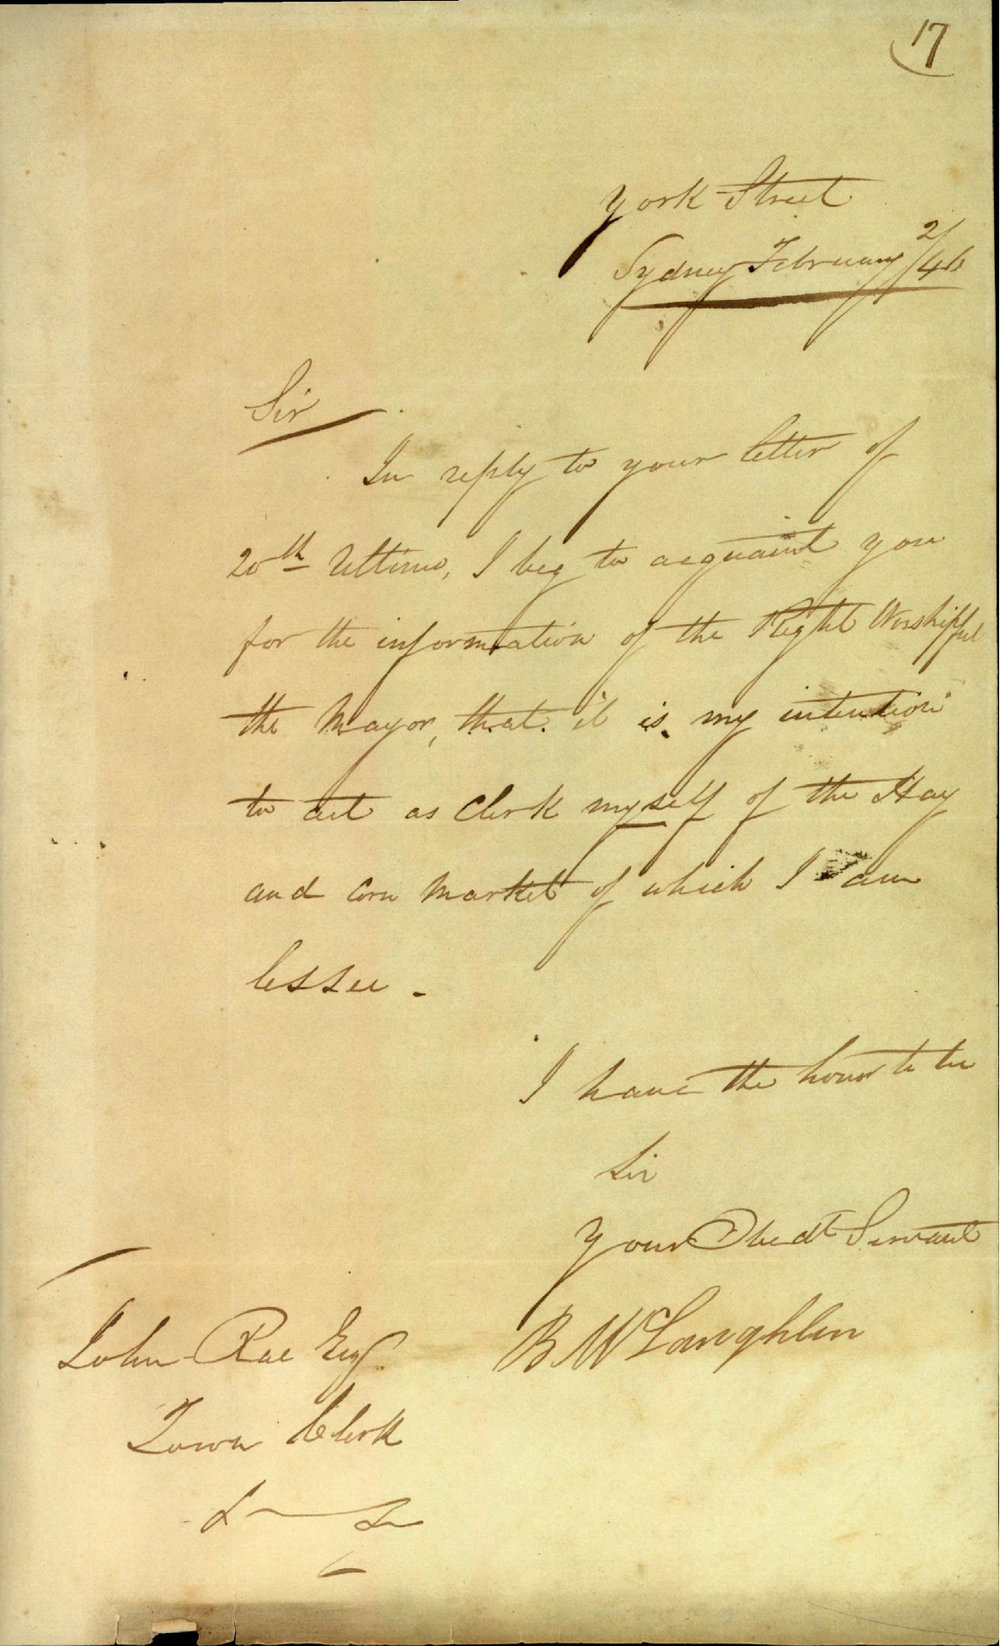 17
York Street
Sydney February 2/46
Sir
In reply to your letter of
20th Ultimo, I beg to acquaint you
for the information of the Right Worshipful
the Mayor, that it is my intention
to act as Clerk myself of the Hay
and Corn Market of which I am
lessee -
I have the honor to be
Sir
Your Obedt Servant
B McLaughlin
John Rae Esqr
Town Clerk